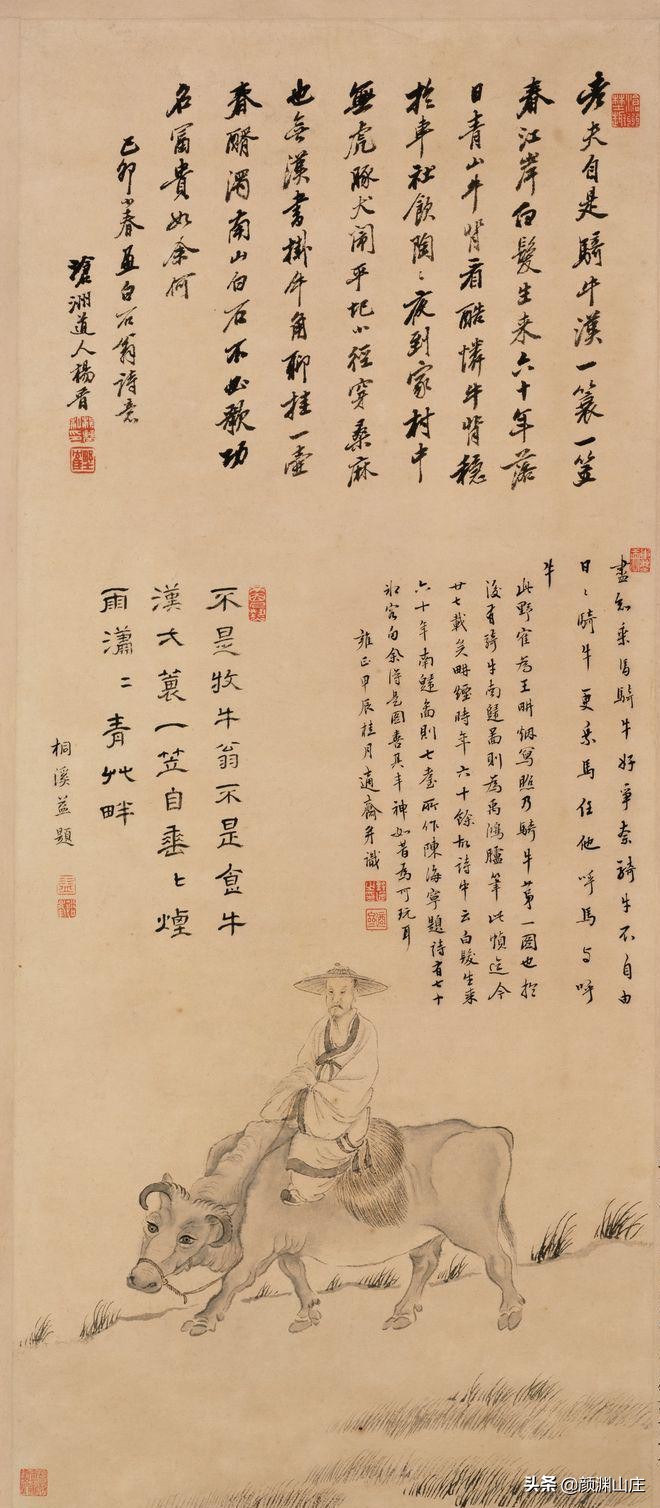 老夫自是騎牛漢一蓑一笠
春江岸白髮生来六十年落
日青山牛背看酷憐牛背穩
於車社飲陶〻夜到家村中
無虎豚犬閙平圯小徑穿桑麻
也無漢書掛牛角聊挂一壺
春醑濁南山白石不必歌功
名富貴如余何
己卯小春画白石翁詩意
滄洲道人楊晋
盡知乘馬騎牛好爭奈騎牛不自由
日〻騎牛更乘馬任他呼馬与呼
牛
此野雀為王畊烟寫照乃騎牛第一圖也於
後有騎牛南還啚則為禹鴻臚筆此幀迄今
廿七載矣畊煙時年六十餘故詩中云白髮生来
六十年南還啚則七
所作陳海寧題詩有七十
余得是圖喜其丰神如昔為可玩耳
雍正甲辰桂月適齋并識
不是牧牛翁不是飯牛
漢大蓑一笠自垂〻煙
雨瀟〻青艸畔
桐溪益題
头条 @颜渊山庄